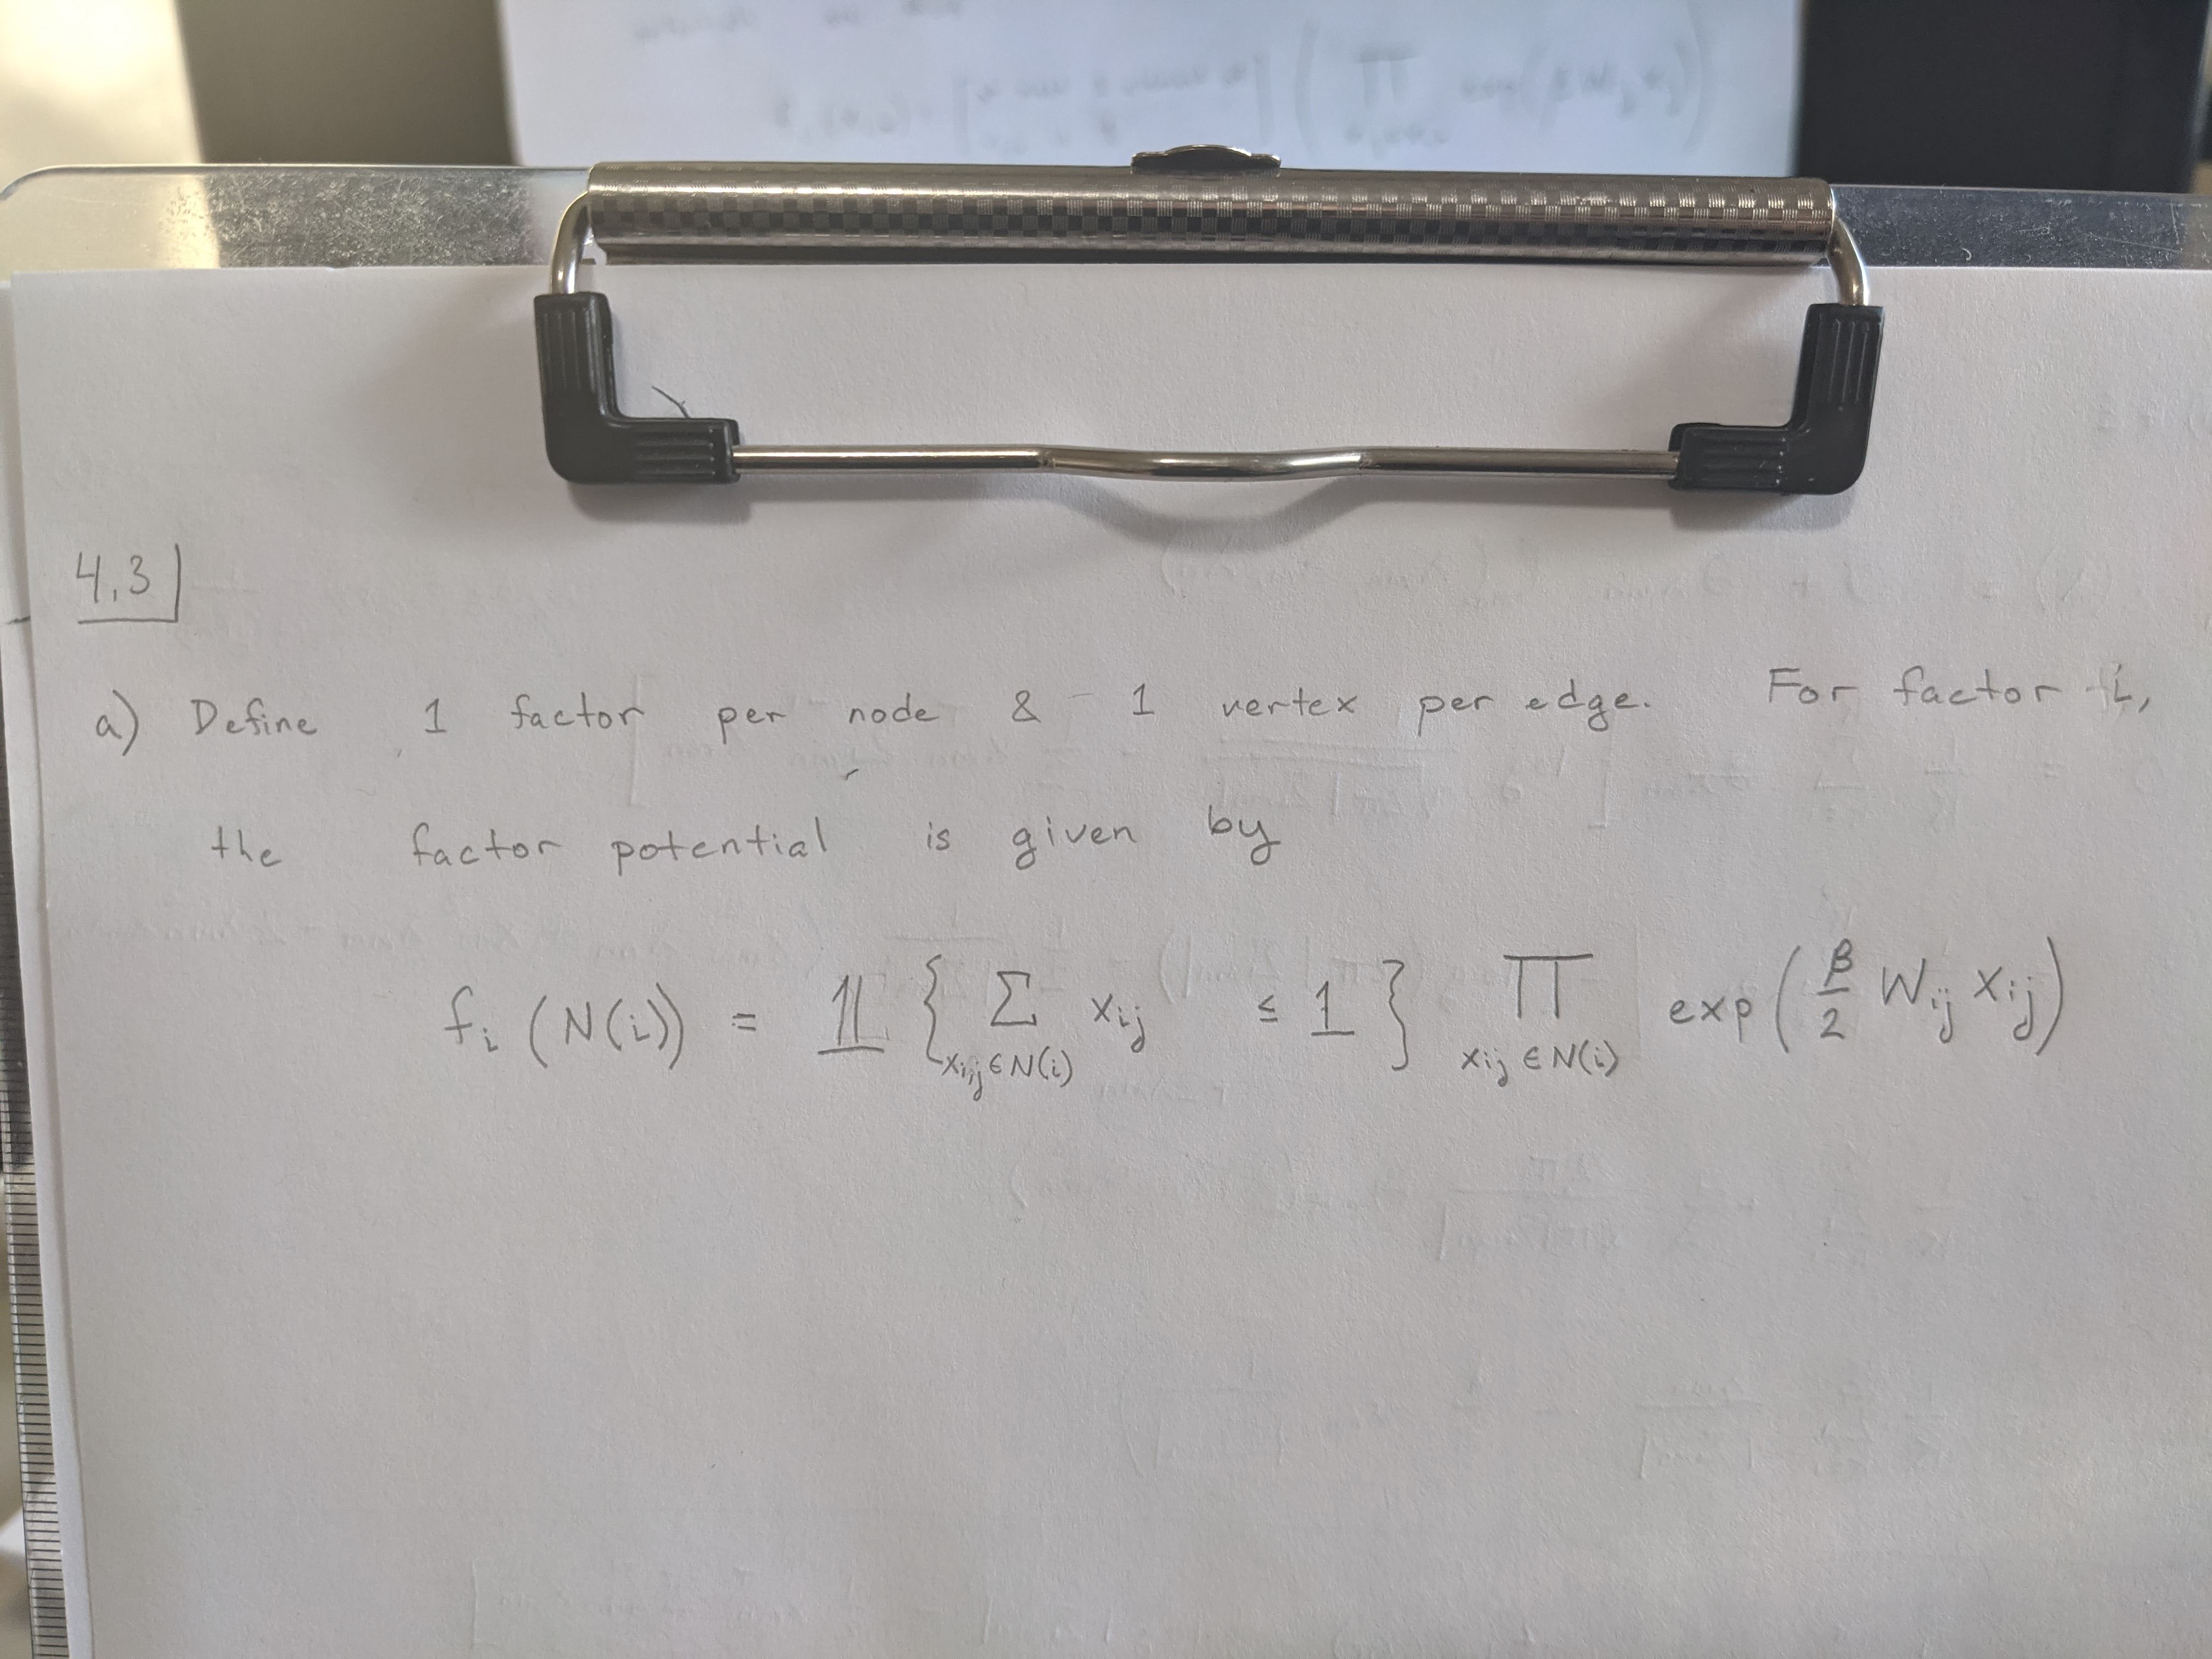 4.3
a) Define 1 factor per node & 1 vertex per edge. For factor i,
the factor potential is given by
f_i (N(i)) = 𝟙 { Σ_{x_ij ∈ N(i)} x_ij ≤ 1 } ∏_{x_ij ∈ N(i)} exp( β/2 W_ij x_ij )